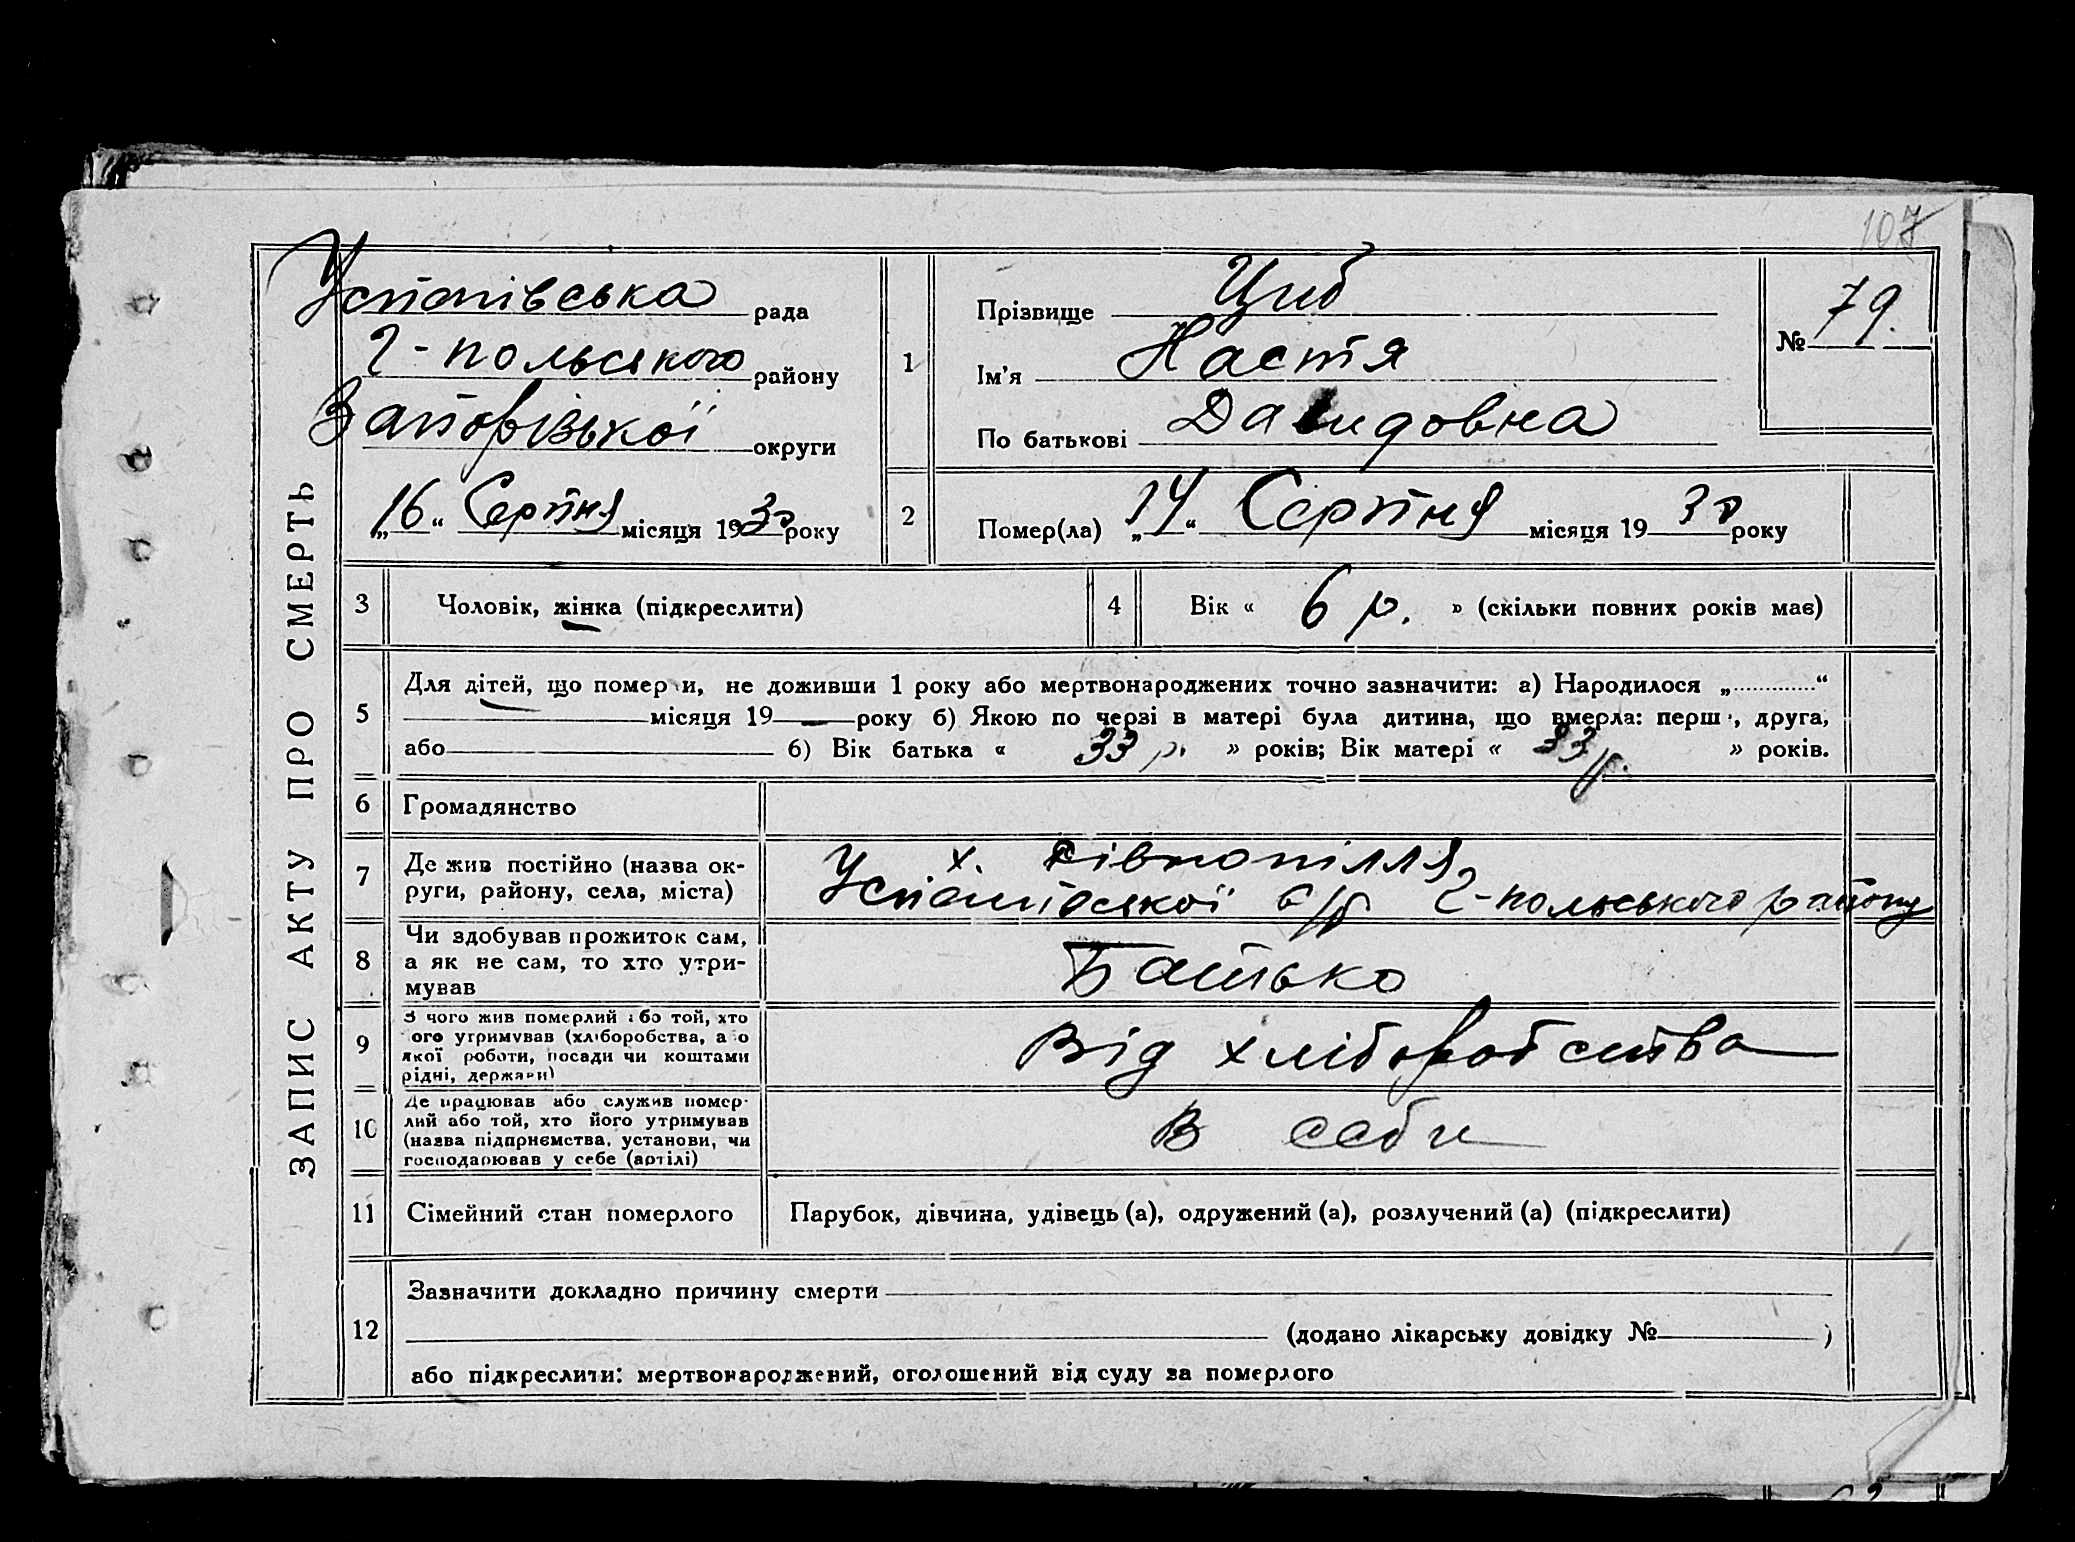 107
ЗАПИС АКТУ ПРО СМЕРТЬ
Успенівська рада
Г-польського району
Запорізької округи
„16“ Серпня місяця 1930 року
1
Прізвище Циб
Ім'я Настя
По батькові Давидовна
№ 79.
2
Помер(ла) „14“ Серпня місяця 1930 року
3 Чоловік, жінка (підкреслити)
4 Вік « 6 р. » (скільки повних років має)
5
Для дітей, що померли, не доживши 1 року або мертвонароджених точно зазначити: а) Народилося „............“
місяця 19 — року б) Якою по черзі в матері була дитина, що вмерла: перша, друга,
або 6) Вік батька « 33 р. » років; Вік матері « 33 р. » років.
6 Громадянство
7 Де жив постійно (назва ок-
руги, району, села, міста)
х. Рівнопілля
Успенівської с/р. Г-польського району
8 Чи здобував прожиток сам,
а як не сам, то хто утри-
мував
Батько
9 З чого жив померлий або той, хто
його утримував (хліборобства, або
якої роботи, посади чи коштами
рідні, держави)
Від хліборобства
10 Де працював або служив помер-
лий або той, хто його утримував
(назва підприємства, установи, чи
господарював у себе (артілі)
В себе
11 Сімейний стан померлого
Парубок, дівчина, удівець (а), одружений (а), розлучений (а) (підкреслити)
12
Зазначити докладно причину смерти
(додано лікарську довідку № )
або підкреслити: мертвонароджений, оголошений від суду за померлого